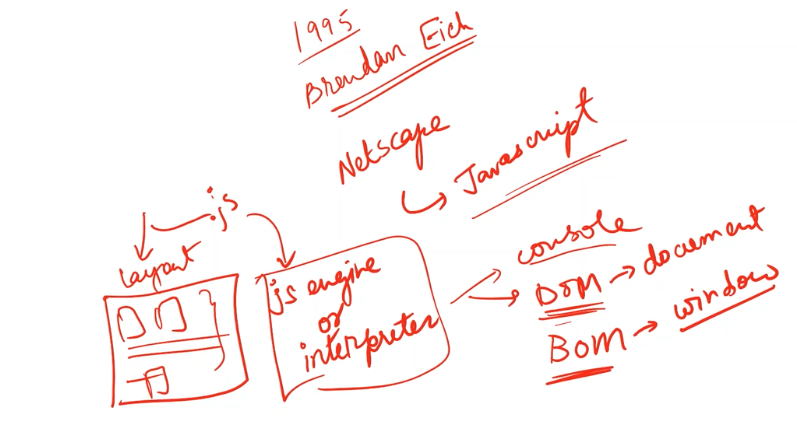 1995
Brendan Eich
Netscape
Javascript
.js
Layout
js engine
or
interpreter
console
DOM → document
BOM → window